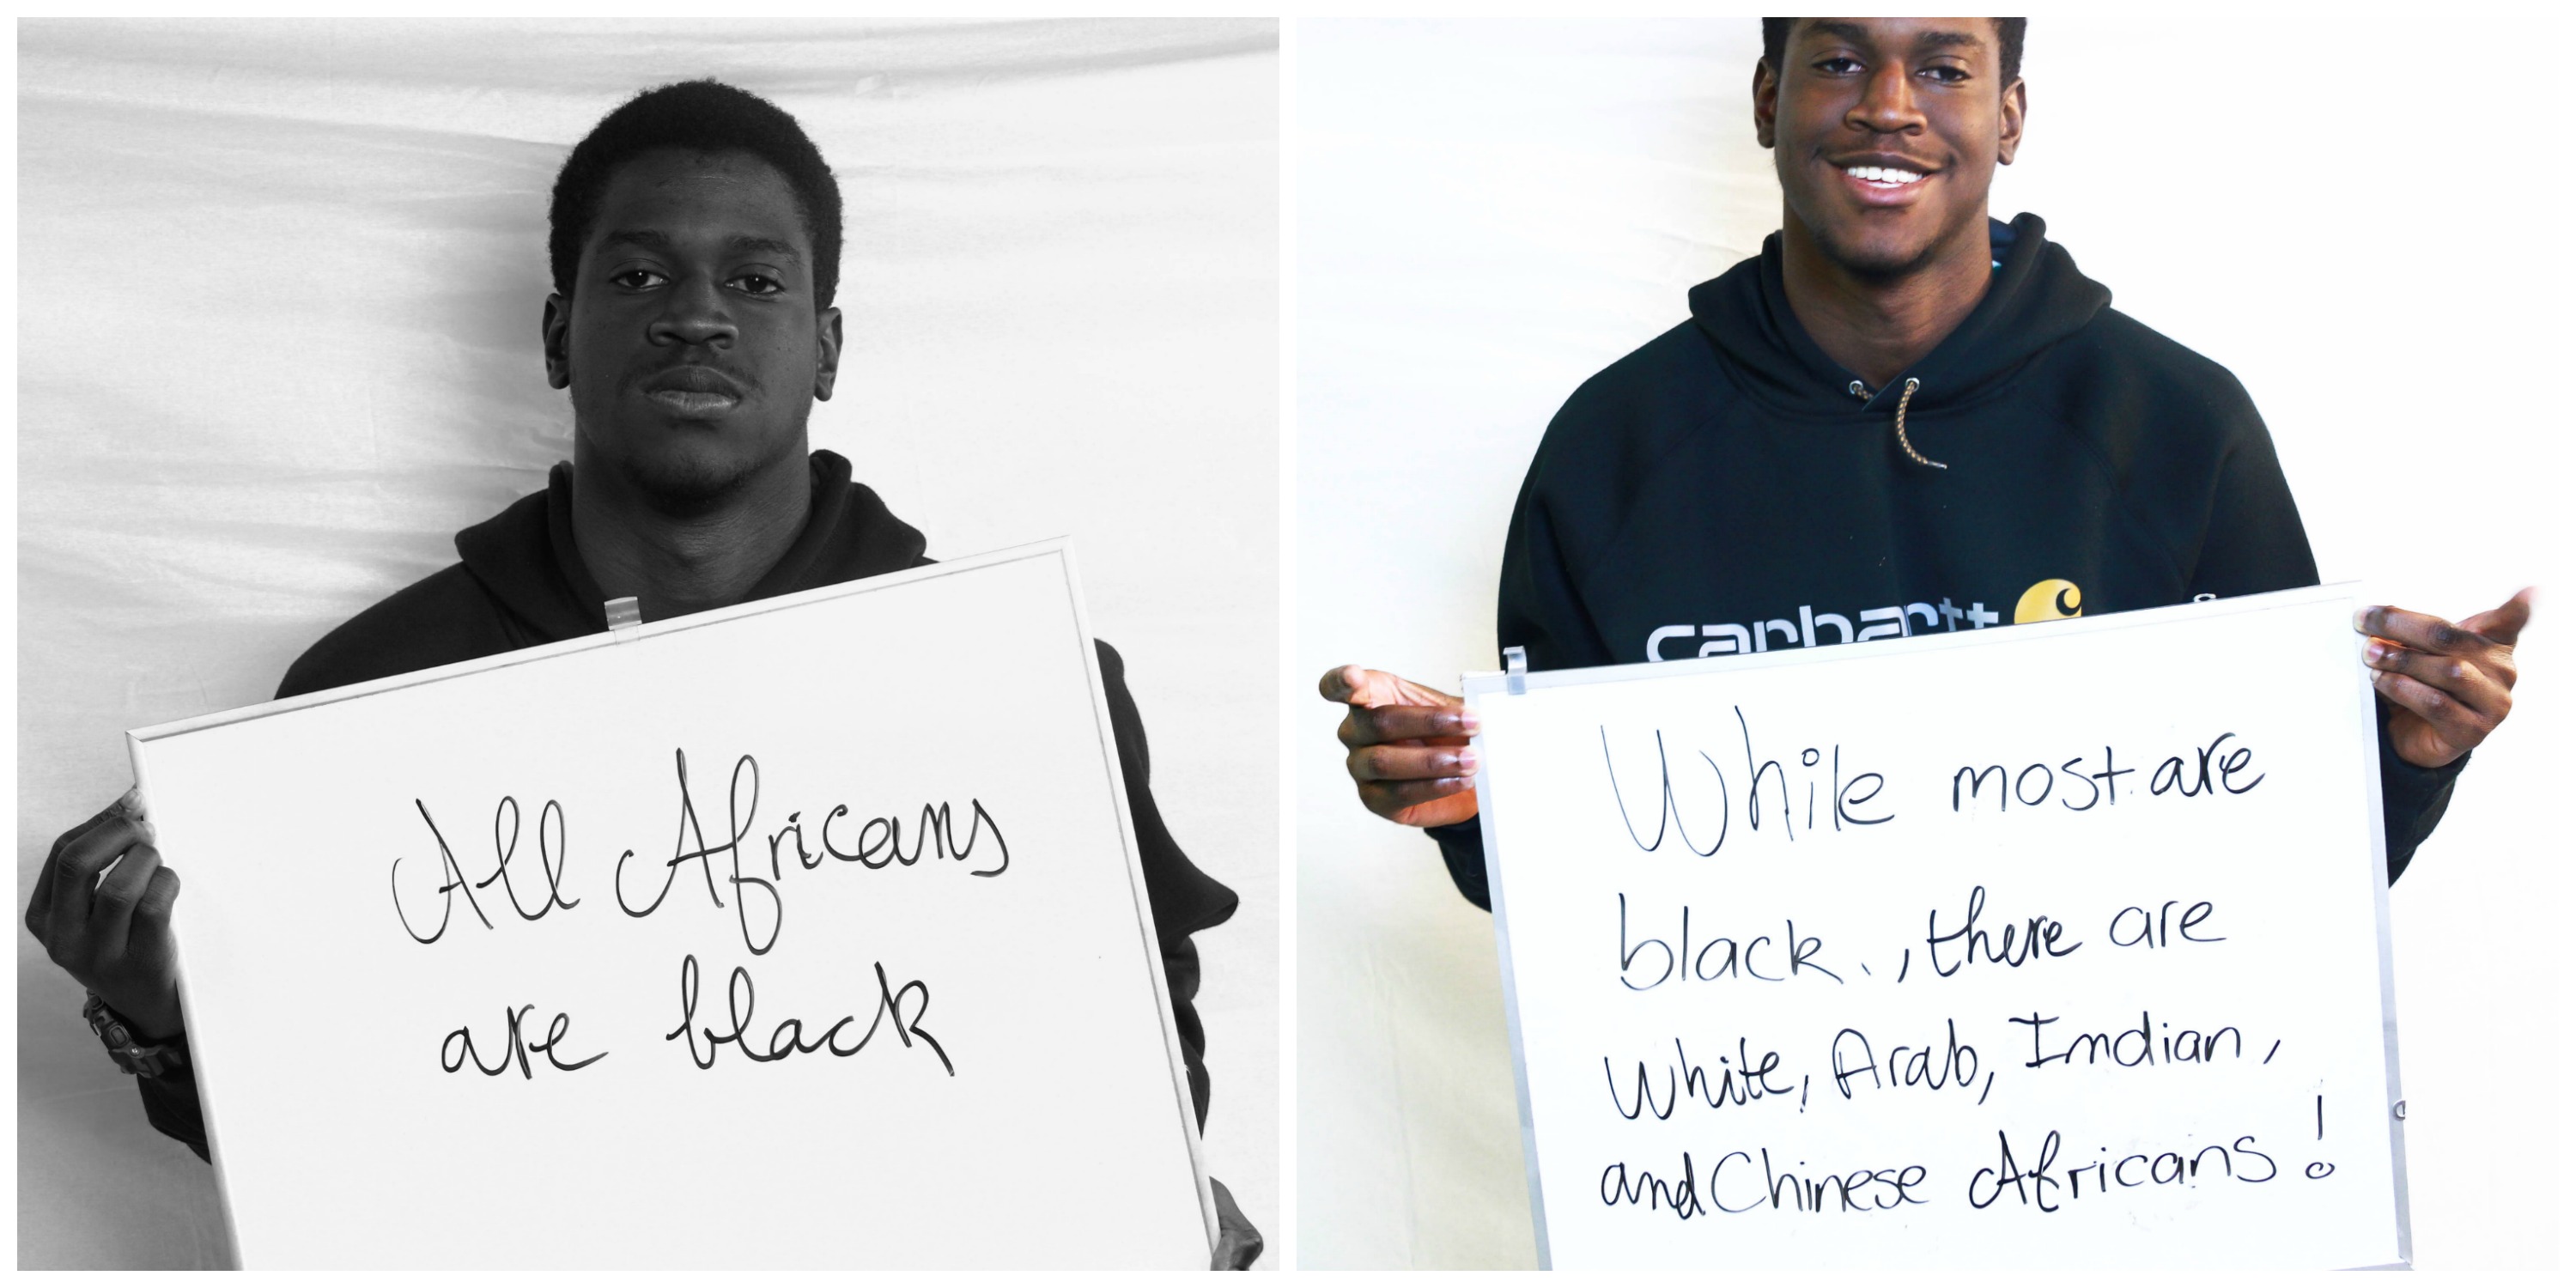 All Africans
are black
carhartt
While most are
black., there are
White, Arab, Indian,
and Chinese Africans!